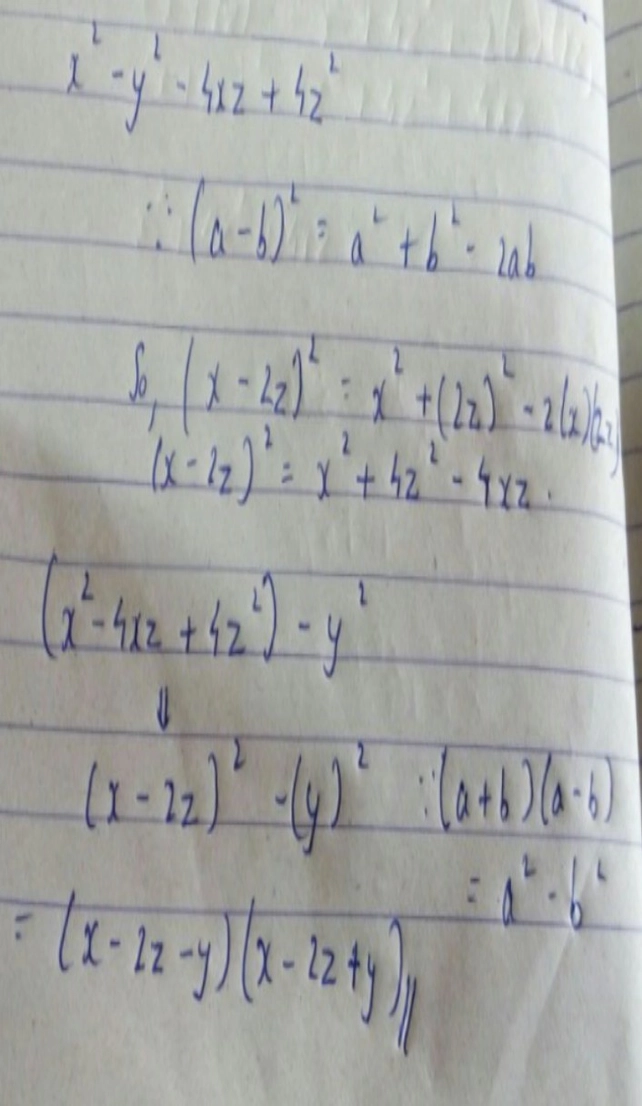 x² - y² - 4xz + 4z²
∵ (a - b)² = a² + b² - 2ab
So, (x - 2z)² = x² + (2z)² - 2(x)(2z)
(x - 2z)² = x² + 4z² - 4xz.
(x² - 4xz + 4z²) - y²
⇓
(x - 2z)² - (y)² ∵ (a + b)(a - b)
= a² - b²
= (x - 2z - y)(x - 2z + y)//